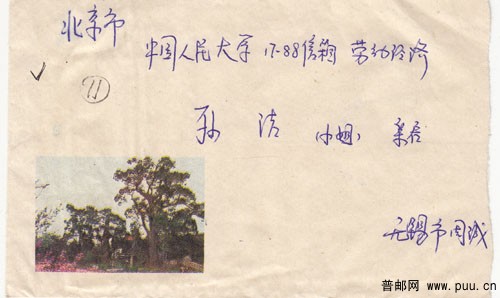 北京市
中国人民大学 17-88信箱 劳动经济
11
孙 洁 小姐: 亲启
无锡市周诚
普邮网 www.puu.cn